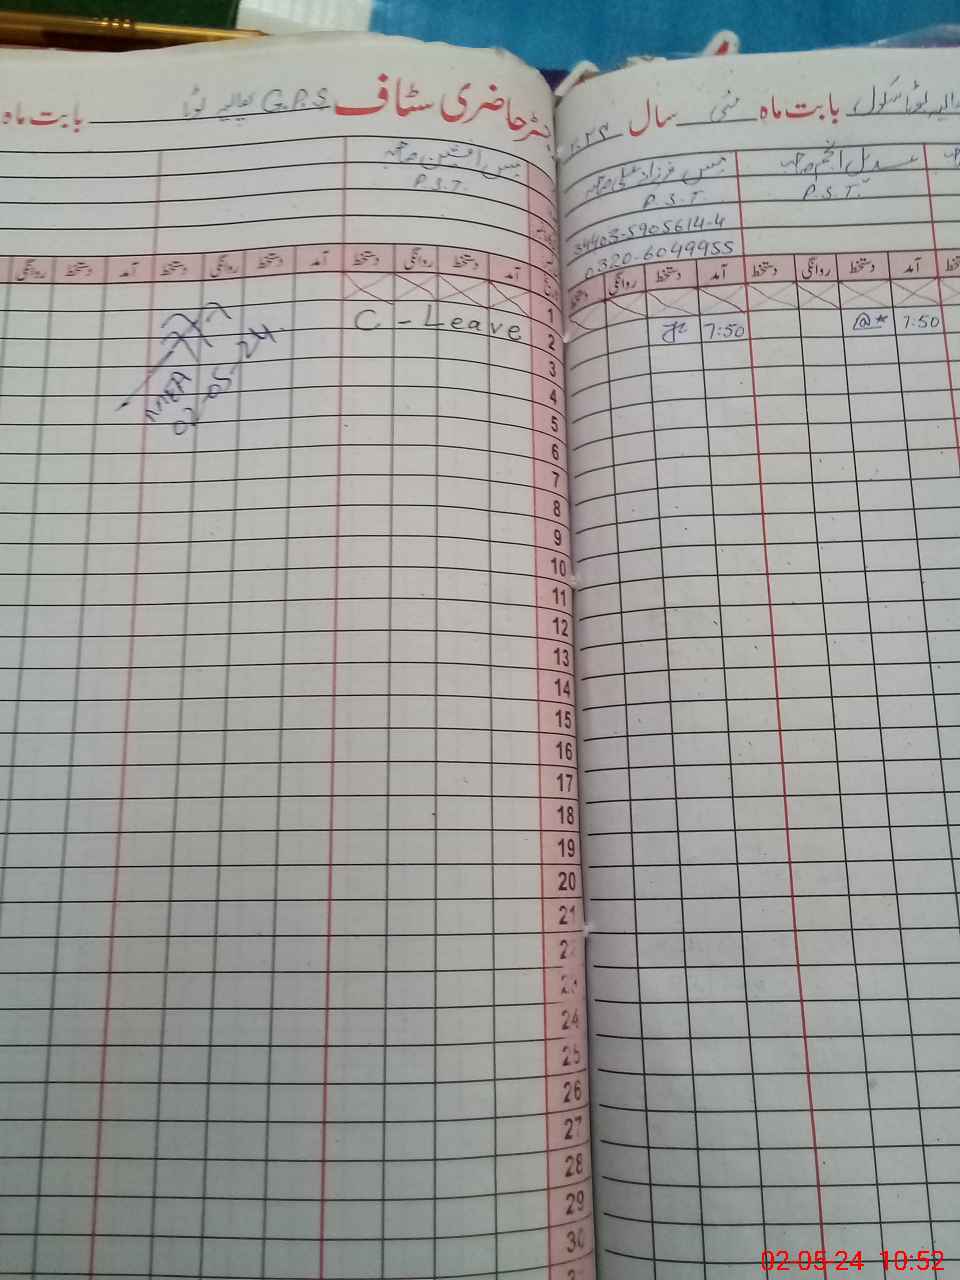 بابت ماہ G.P.S رجسٹر حاضری سٹاف
P.S.T.
آمد دستخط روانگی دستخط آمد دستخط روانگی دستخط آمد دستخط روانگی
C - Leave
AAEA
02-05-24
سکول بابت ماہ مئی سال
مس
P.S.T.
P.S.T.
34403-5905614-4
0320-6049955
دستخط آمد دستخط روانگی دستخط آمد دستخط روانگی دستخط
7:50
@* 7:50
1
2
3
4
5
6
7
8
9
10
11
12
13
14
15
16
17
18
19
20
21
22
23
24
25
26
27
28
29
30
02-05-24 10:52